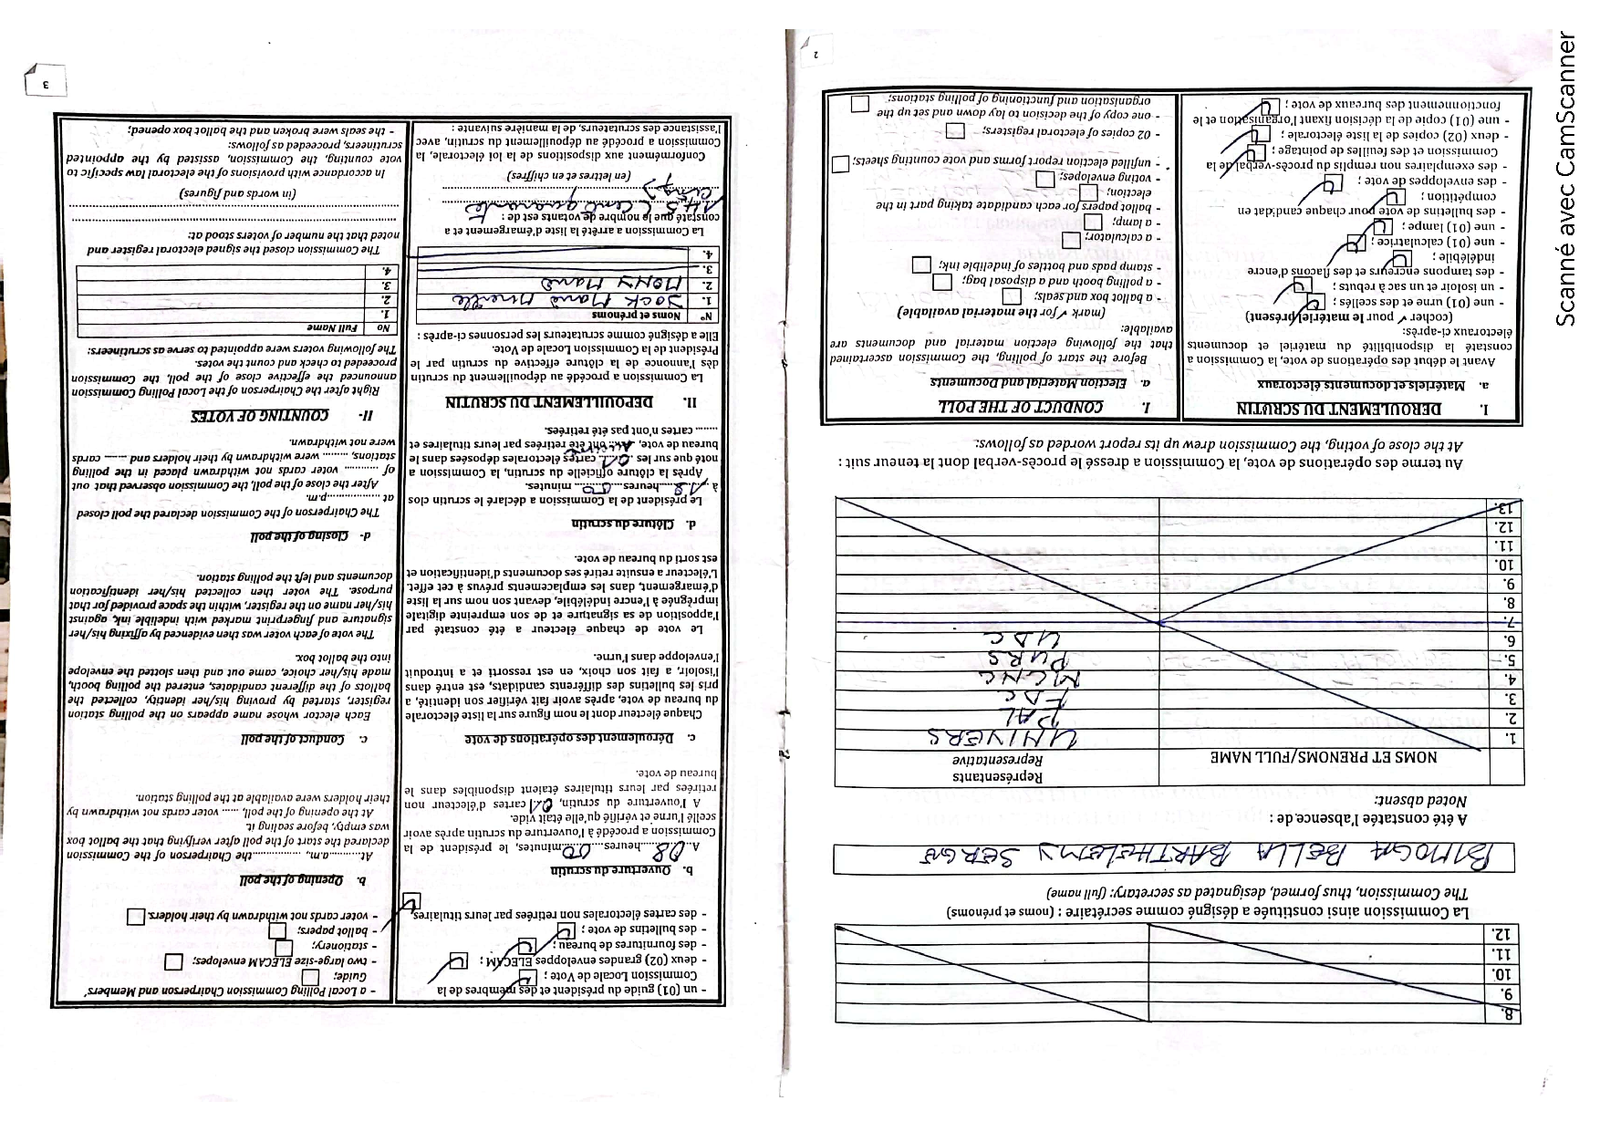 8.
9.
10.
11.
12.
La Commission ainsi constituée a désigné comme secrétaire : (noms et prénoms)
The Commission, thus formed, designated as secretary: (full name)
BINOGA BELLA BARTHELEMY SERGE
A été constatée l'absence de :
Noted absent:
NOMS ET PRENOMS/FULL NAME
Représentants
Representative
1. UNIVERS
2. PAL
3. FDC
4. MCNC
5. PURS
6. UDC
7.
8.
9.
10.
11.
12.
13.
Au terme des opérations de vote, la Commission a dressé le procès-verbal dont la teneur suit :
At the close of voting, the Commission drew up its report worded as follows:
I. DEROULEMENT DU SCRUTIN
a. Matériels et documents électoraux
Avant le début des opérations de vote, la Commission a
constaté la disponibilité du matériel et documents
électoraux ci-après:
(cocher ✓ pour le matériel présent)
- une (01) urne et des scellés ;
- un isoloir et un sac à rebuts ;
- des tampons encreurs et des flacons d'encre
indélébile ;
- une (01) calculatrice ;
- une (01) lampe ;
- des bulletins de vote pour chaque candidat en
compétition ;
- des enveloppes de vote ;
- des exemplaires non remplis du procès-verbal de la
Commission et des feuilles de pointage ;
- deux (02) copies de la liste électorale ;
- une (01) copie de la décision fixant l'organisation et le
fonctionnement des bureaux de vote ;
I. CONDUCT OF THE POLL
a. Election Material and Documents
Before the start of polling, the Commission ascertained
that the following election material and documents are
available:
(mark ✓ for the material available)
- a ballot box and seals;
- a polling booth and a disposal bag;
- stamp pads and bottles of indelible ink;
- a calculator;
- a lamp;
- ballot papers for each candidate taking part in the
election;
- voting envelopes;
- unfilled election report forms and vote counting sheets;
- 02 copies of electoral registers;
- one copy of the decision to lay down and set up the
organisation and functioning of polling stations;
2
- un (01) guide du président et des membres de la
Commission Locale de Vote ;
- deux (02) grandes enveloppes ELECAM ;
- des fournitures de bureau ;
- des bulletins de vote ;
- des cartes électorales non retirées par leurs titulaires.
b. Ouverture du scrutin
A 08 heures 00 minutes, le président de la
Commission a procédé à l'ouverture du scrutin après avoir
scellé l'urne et vérifié qu'elle était vide.
A l'ouverture du scrutin, 01 cartes d'électeur non
retirées par leurs titulaires étaient disponibles dans le
bureau de vote.
c. Déroulement des opérations de vote
Chaque électeur dont le nom figure sur la liste électorale
du bureau de vote, après avoir fait vérifier son identité, a
pris les bulletins des différents candidats, est entré dans
l'isoloir, a fait son choix, en est ressorti et a introduit
l'enveloppe dans l'urne.
Le vote de chaque électeur a été constaté par
l'apposition de sa signature et de son empreinte digitale
imprégnée à l'encre indélébile, devant son nom sur la liste
d'émargement, dans les emplacements prévus à cet effet.
L'électeur a ensuite retiré ses documents d'identification et
est sorti du bureau de vote.
d. Clôture du scrutin
Le président de la Commission a déclaré le scrutin clos
à 18 heures 00 minutes.
Après la clôture officielle du scrutin, la Commission a
noté que sur les 01 cartes électorales déposées dans le
bureau de vote, Aucune ont été retirées par leurs titulaires et
....... cartes n'ont pas été retirées.
II. DEPOUILLEMENT DU SCRUTIN
La Commission a procédé au dépouillement du scrutin
dès l'annonce de la clôture effective du scrutin par le
Président de la Commission Locale de Vote.
Elle a désigné comme scrutateurs les personnes ci-après :
N° Noms et prénoms
1. JOCK Marie Mireille
2. MONY Marie
3.
4.
La Commission a arrêté la liste d'émargement et a
constaté que le nombre de votants est de :
145 ( Cent quarante
cinq )
(en lettres et en chiffres)
Conformément aux dispositions de la loi électorale, la
Commission a procédé au dépouillement du scrutin, avec
l'assistance des scrutateurs, de la manière suivante :
- a Local Polling Commission Chairperson and Members'
Guide;
- two large-size ELECAM envelopes;
- stationery;
- ballot papers;
- voter cards not withdrawn by their holders.
b. Opening of the poll
At..........a.m., ............the Chairperson of the Commission
declared the start of the poll after verifying that the ballot box
was empty, before sealing it.
At the opening of the poll, ...... voter cards not withdrawn by
their holders were available at the polling station.
c. Conduct of the poll
Each elector whose name appears on the polling station
register, started by proving his/her identity, collected the
ballots of the different candidates, entered the polling booth,
made his/her choice, came out and then slotted the envelope
into the ballot box.
The vote of each voter was then evidenced by affixing his/her
signature and fingerprint marked with indelible ink, against
his/her name on the register, within the space provided for that
purpose. The voter then collected his/her identification
documents and left the polling station.
d- Closing of the poll
The Chairperson of the Commission declared the poll closed
at .....................p.m.
After the close of the poll, the Commission observed that out
of ........... voter cards not withdrawn placed in the polling
stations, ........ were withdrawn by their holders and ....... cards
were not withdrawn.
II- COUNTING OF VOTES
Right after the Chairperson of the Local Polling Commission
announced the effective close of the poll, the Commission
proceeded to check and count the votes.
The following voters were appointed to serve as scrutineers:
No Full Name
1.
2.
3.
4.
The Commission closed the signed electoral register and
noted that the number of voters stood at:
(in words and figures)
In accordance with provisions of the electoral law specific to
vote counting, the Commission, assisted by the appointed
scrutineers, proceeded as follows:
- the seals were broken and the ballot box opened;
3
Scanné avec CamScanner